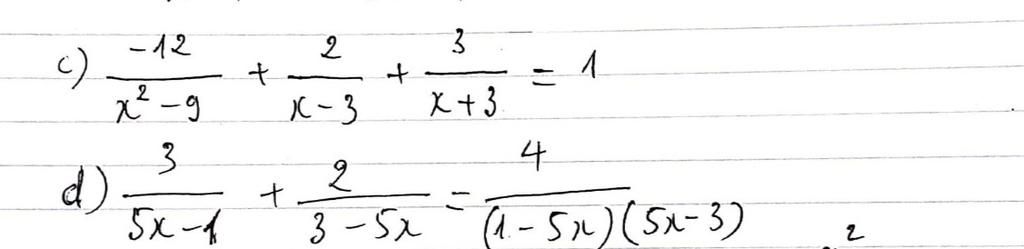 c) \frac{-12}{x^2-9} + \frac{2}{x-3} + \frac{3}{x+3} = 1
d) \frac{3}{5x-1} + \frac{2}{3-5x} = \frac{4}{(1-5x)(5x-3)}
2